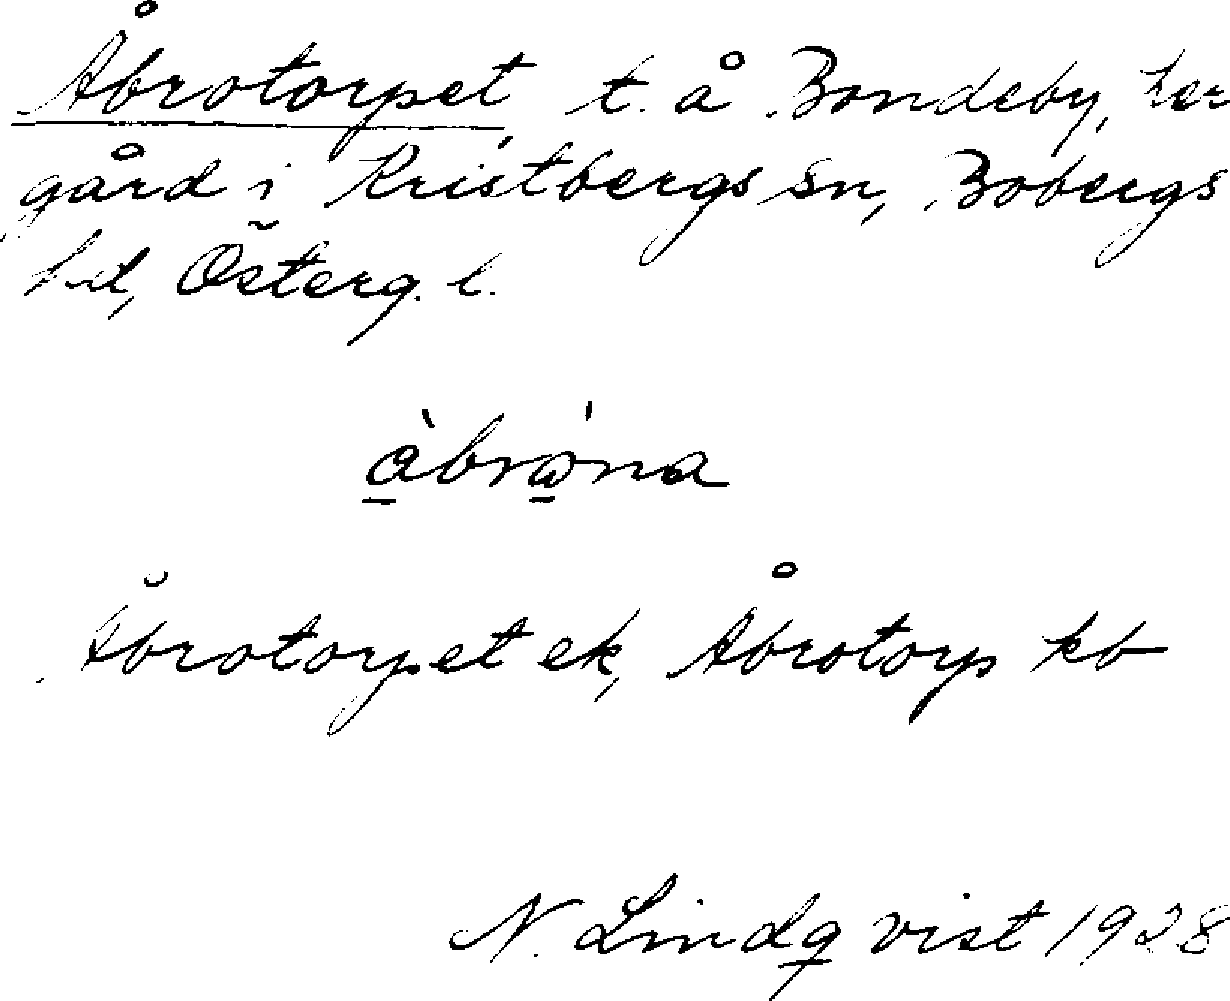 Åbrotorpet, t. å Bondeby, her
gård i Kristbergs sn, Bobergs
hd, Österg. l.
Åbrotorpet ek, Åbrotorp kb
N. Lindqvist 1928